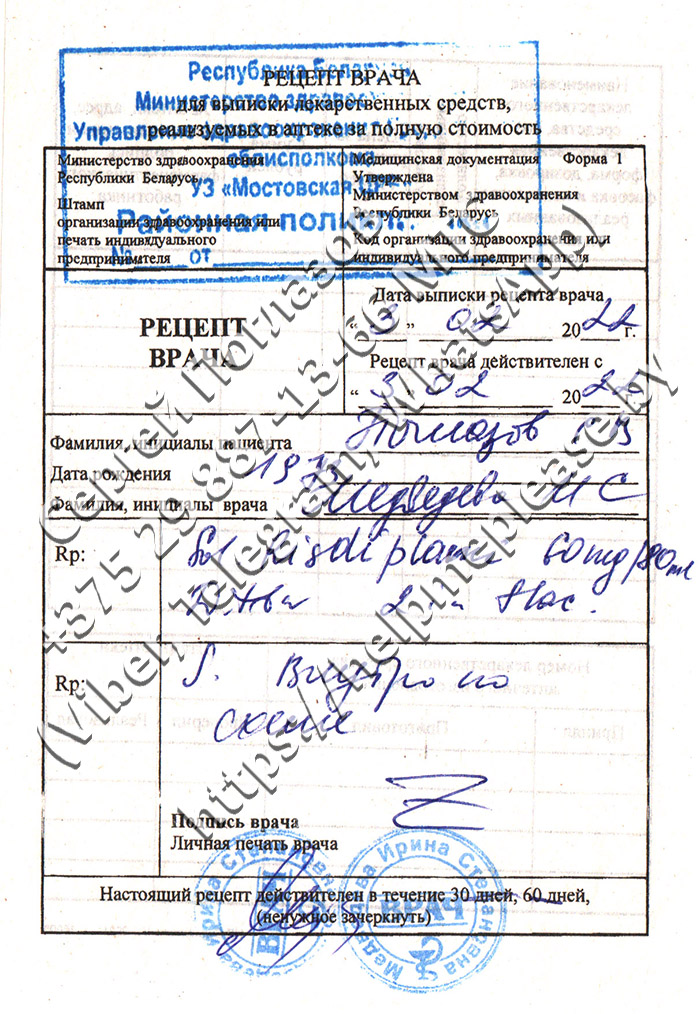 Республика Беларусь
РЕЦЕПТ ВРАЧА
Министерство
для выписки лекарственных средств,
Управление здравоохранения
реализуемых в аптеке за полную стоимость
облисполкома
Министерство здравоохранения
Республики Беларусь
УЗ «Мостовская ЦРБ»
Штамп
организации здравоохранения или
печать индивидуального
предпринимателя
Районная
№ от
Медицинская документация Форма 1
Утверждена
Министерством здравоохранения
Республики Беларусь
Код организации здравоохранения или
индивидуального предпринимателя
РЕЦЕПТ
ВРАЧА
Дата выписки рецепта врача
“ 3 ” 02 2022 г.
Рецепт врача действителен с
“ 3 ” 02 2022
Фамилия, инициалы пациента
Дата рождения
Фамилия, инициалы врача Медведева И С
Rp: Sol Risdiplami 60mg/80ml
Rp: S. Внутрь по
схеме
Подпись врача
Личная печать врача
Настоящий рецепт действителен в течение 30 дней, 60 дней,
(ненужное зачеркнуть)
Медведева Ирина Степановна
ВРАЧ
Ирина Степановна
ВРАЧ
(Сергей Поглазов)
+375 29 887-13-66 МТС
(Viber, Telegram, WhatsApp)
https://helpmeplease.by